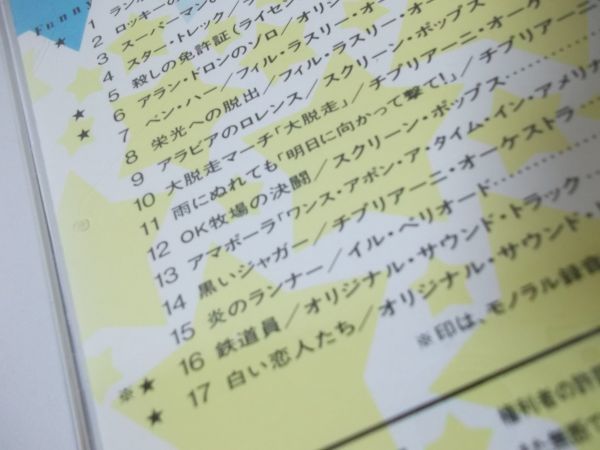 Funny
1 ラン
★ 2 ロッキーの
3 スーパーマン
4 スター・トレック/
5 殺しの免許証(ライセン
★ 6 アラン・ドロンのゾロ/オリジ
★ 7 ベン・ハー/フィル・ラスリー・オー
8 栄光への脱出/フィル・ラスリー・オー
9 アラビアのロレンス/スクリーン・ポップス
10 大脱走マーチ「大脱走」/チブリアーニ・オー
11 雨にぬれても「明日に向かって撃て!」/チブリアーニ・オーケ
12 OK牧場の決闘/スクリーン・ポップス
13 アマポーラ「ワンス・アポン・ア・タイム・イン・アメリカ
14 黒いジャガー/チブリアーニ・オーケストラ
15 炎のランナー/イル・ペリオード
※★ 16 鉄道員/オリジナル・サウンド・トラック
★ 17 白い恋人たち/オリジナル・サウンド・ト
※印は、モノラル録音
権利者の許
また無断で